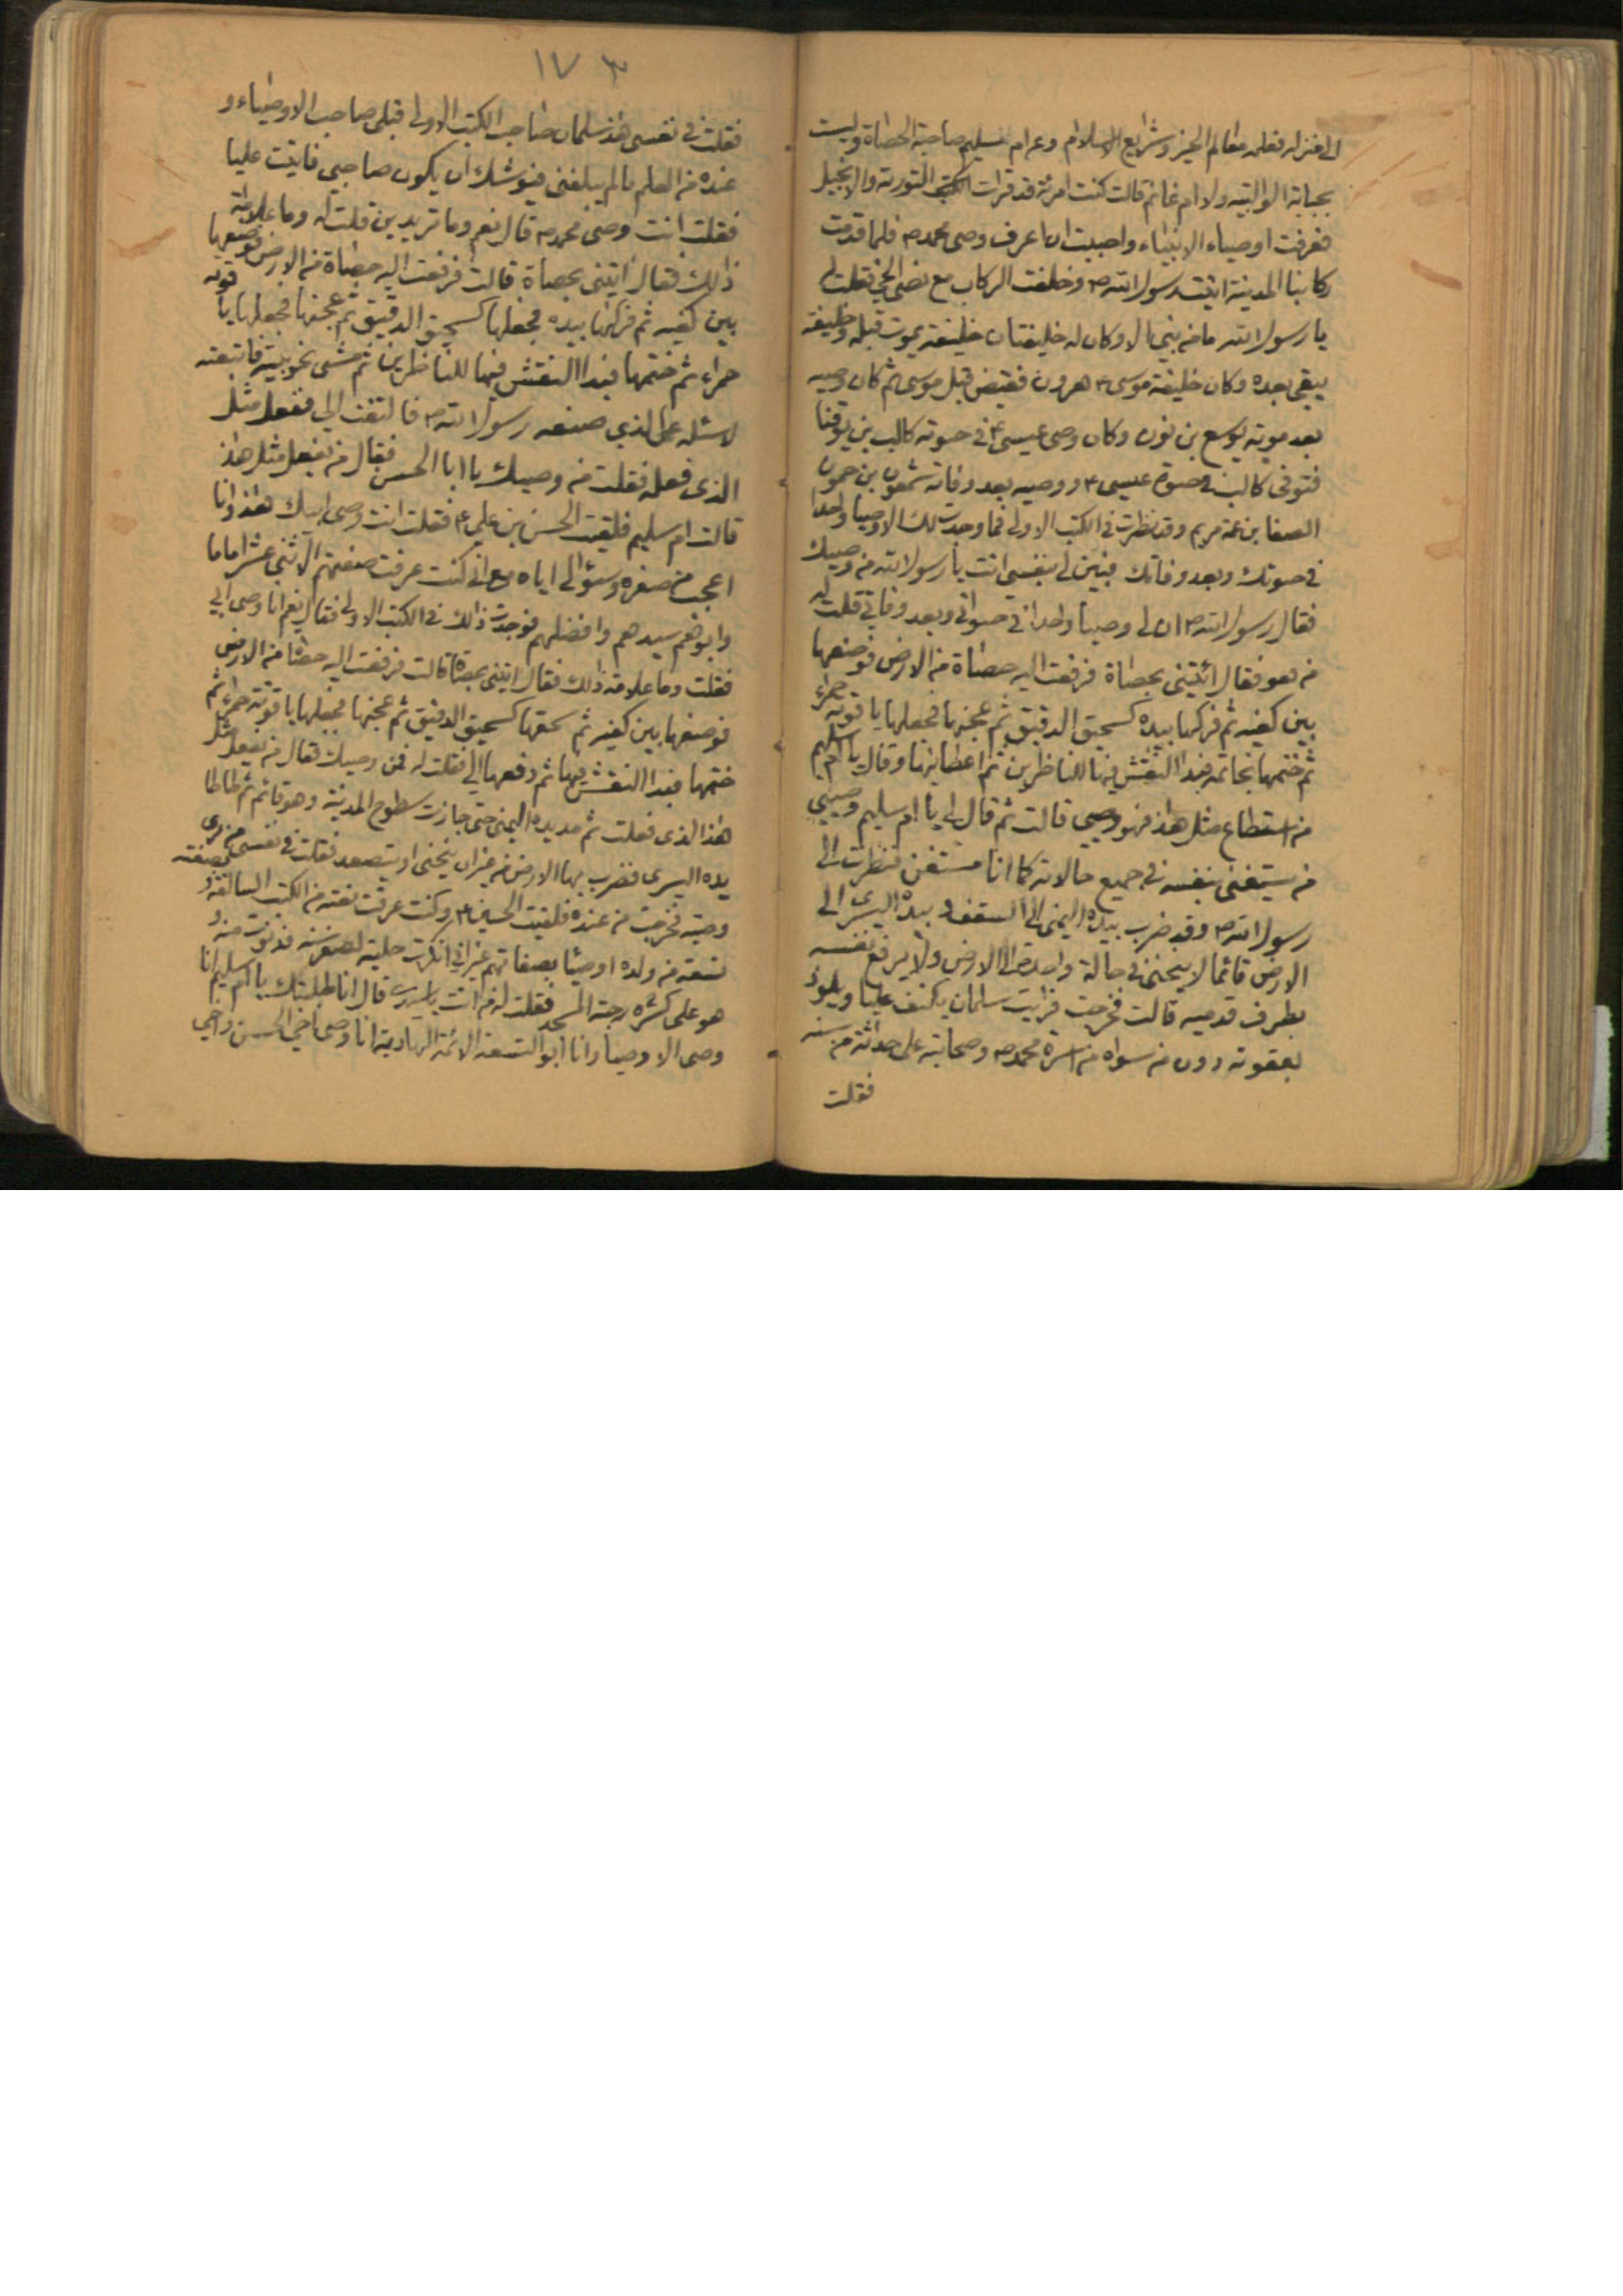 الى منزله فعلمه معالم الخير وشرايع الاسلام وعرام سليم صاحبة الحصاة وليست
بحبابة الوالبية ولا ام غانم قالت كنت امرئة قد قرات الكتب التورية والانجيل
فعرفت اوصياء الانبياء واحببت ان اعرف وصى محمد ص فلما قدمت
ركابنا المدينة اتيت رسول الله ص وخلفت الركاب مع الحى فقلت له
يا رسول الله ما من نبى الا وكان له خليفتان خليفة يموت قبله وخليفة
يبقى بعده وكان خليفة موسى ع هرون فقبض قبل موسى ثم كان وصيه
بعد موته يوشع بن نون وكان وصى عيسى ع في حيوته كالب بن يوقنا
فتوفى كالب في حيوة عيسى ع ووصيه بعد وفاته شمعون بن حمون
الصفا بن عمة مريم وقد نظرت في الكتب الاولى فما وجدت لك الا وصيا واحدا
في حيوتك وبعد وفاتك فبين لى بنفسى انت يا رسول الله من وصيك
فقال رسول الله ص ان لى وصيا واحدا في حيواتى وبعد وفاتى قلت له
من هو فقال ائتينى بحصاة فرفعت اليه حصاة من الارض فوضعها
بين كفيه ثم فركها بيده كسحيق الدقيق ثم عجنها فجعلها ياقوتة حمراء
ثم ختمها بخاتمه فبدا النقش فيها للناظرين ثم اعطانيها وقال يا ام سليم
من استطاع مثل هذا فهو وصيى قالت ثم قال لى يا ام سليم وصيى
من يستغنى بنفسه في جميع حالاته كما انا مستغن فنظرت الى
رسول الله ص وقد ضرب بيده اليمنى الى السقف وبيده اليسرى الى
الارض قائما لا ينحنى في حالة واحدة الى الارض ولا يرفع نفسه
بطرف قدميه قالت فخرجت فرايت سلمان يكنف عليا ويلوذ
بعقوته دون من سواه من اسرة محمد ص وصحابته على حداثة من سنه
فقلت
١٧٣
فقلت في نفسى هذا سلمان صاحب الكتب الاولى قبلى صاحب الاوصياء و
عنده من العلم ما لم يبلغنى فيوشك ان يكون صاحبى فاتيت عليا
فقلت انت وصى محمد ص قال نعم وما تريدين قلت له وما علامة
ذلك فقال ايتنى بحصاة قالت فرفعت اليه حصاة من الارض فوضعها
بين كفيه ثم فركها بيده فجعلها كسحيق الدقيق ثم عجنها فجعلها ياقوته
حمراء ثم ختمها فبدا النقش فيها للناظرين ثم مشى نحو بيته فاتبعته
لاسئله عن الذي صنعه رسول الله ص فالتفت الى ففعل مثل
الذى فعله فقلت من وصيك يا ابا الحسن فقال من يفعل مثل هذا
قالت ام سليم فلقيت الحسن بن على ع فقلت انت وصى ابيك هذا وانا
اعجب من صغره وسئوالى اياه مع انى كنت عرفت صفتهم الاثنى عشر اماما
وابوهم سيدهم وافضلهم فوجدت ذلك في الكتب الاولى فقال نعم انا وصى ابى
فقلت وما علامة ذلك فقال ايتنى بحصاة قالت فرفعت اليه حصاة من الارض
فوضعها بين كفيه ثم سحقها كسحيق الدقيق ثم عجنها فجعلها ياقوتة حمراء ثم
ختمها فبدا النقش فيها ثم دفعها الى فقلت له فمن وصيك فقال من يفعل مثل
هذا الذى فعلت ثم مد يده اليمنى حتى جازت سطوح المدينة وهو قائم ثم طاطا
يده اليسرى فضرب بها الارض من غير ان ينحنى او يتصعد فقلت في نفسى من يرى
وصيه فخرجت من عنده فلقيت الحسين ع وكنت عرفت نعته من الكتب السالفة بصفته و
تسعة من ولده اوصيا بصفاتهم غير انى انكرت حليته لصغر سنه فدنوت منه و
هو على كسرة رحبة المسجد فقلت له من انت يا سيدى قال انا طلبتك يا ام سليم انا
وصى الاوصيا وانا ابو التسعة الائمة الهادية انا وصى اخى الحسن واخى